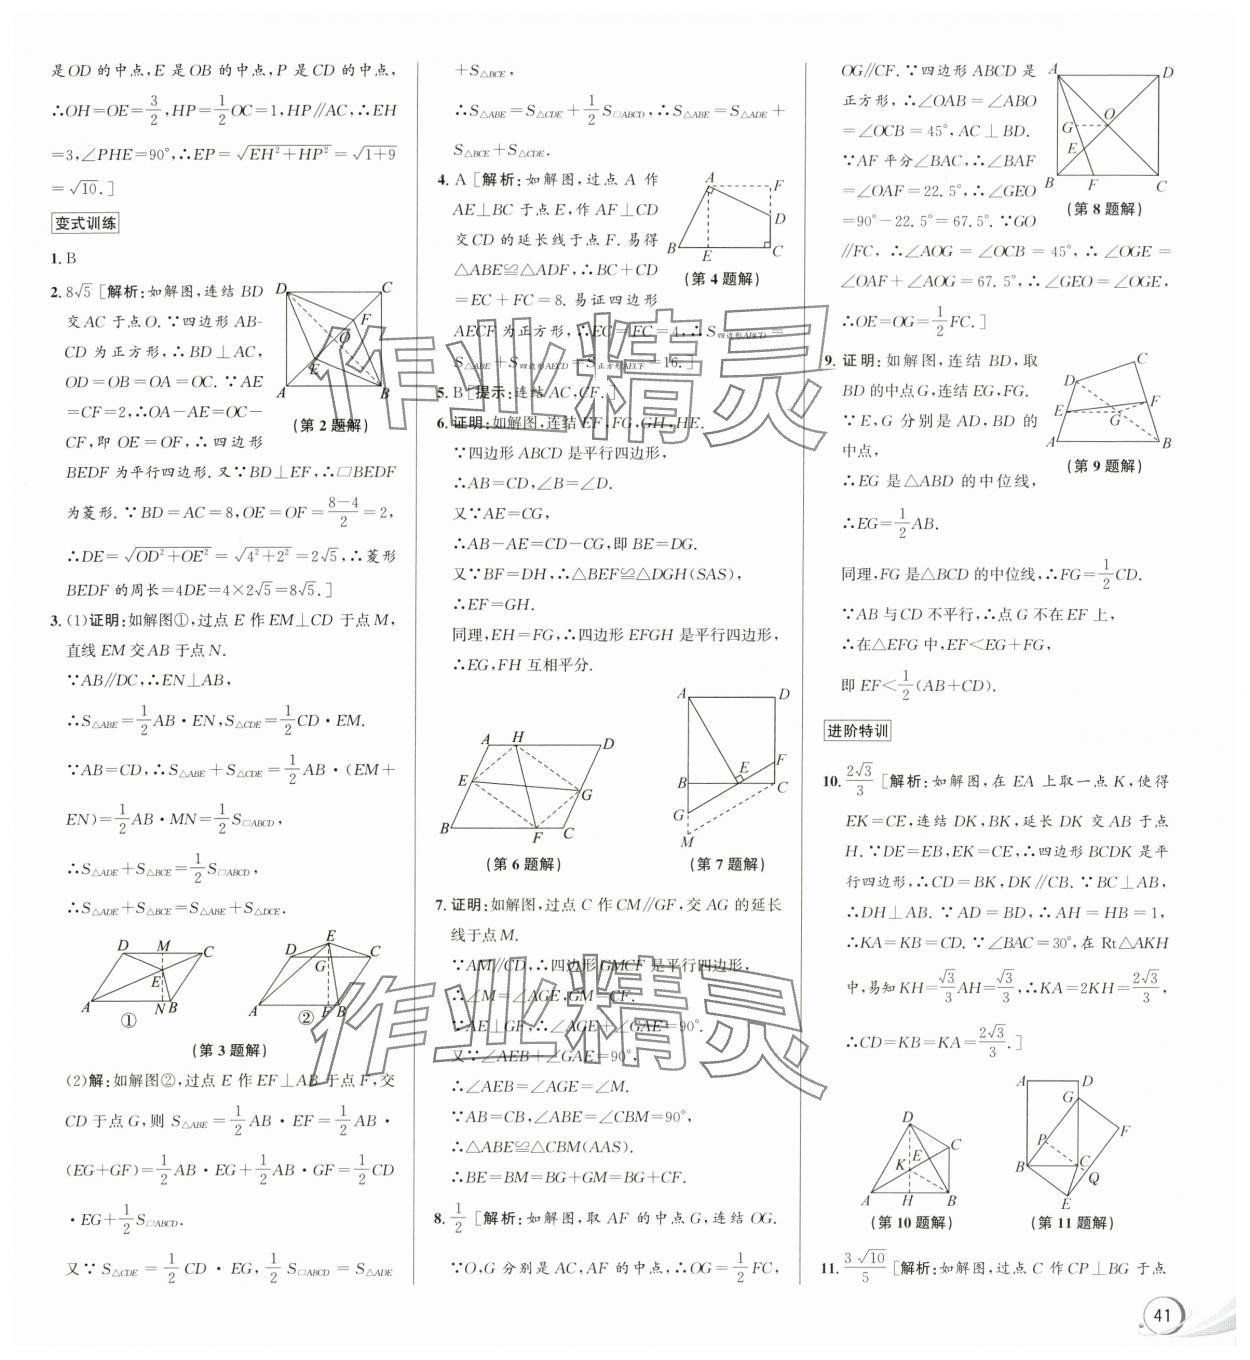 是OD的中点,E是OB的中点,P是CD的中点,
∴OH=OE=3/2,HP=1/2OC=1,HP∥AC,∴EH
=3,∠PHE=90°,∴EP=√(EH²+HP²)=√(1+9)
=√10.]
变式训练
1. B
2. 8√5 [解析:如解图,连结BD
交AC于点O.∵四边形AB-
CD为正方形,∴BD⊥AC,
OD=OB=OA=OC.∵AE
=CF=2,∴OA-AE=OC-
CF,即OE=OF,∴四边形
BEDF为平行四边形.又∵BD⊥EF,∴□BEDF
为菱形.∵BD=AC=8,OE=OF=(8-4)/2=2,
∴DE=√(OD²+OE²)=√(4²+2²)=2√5,∴菱形
BEDF的周长=4DE=4×2√5=8√5.]
D C F O E A B
(第2题解)
3. (1)证明:如解图①,过点E作EM⊥CD于点M,
直线EM交AB于点N.
∵AB∥DC,∴EN⊥AB,
∴S△ABE=1/2AB·EN,S△CDE=1/2CD·EM.
∵AB=CD,∴S△ABE+S△CDE=1/2AB·(EM+
EN)=1/2AB·MN=1/2S□ABCD,
∴S△ADE+S△BCE=1/2S□ABCD,
∴S△ADE+S△BCE=S△ABE+S△DCE.
D M C E A N B ①
E D C G A F B ②
(第3题解)
(2)解:如解图②,过点E作EF⊥AB于点F,交
CD于点G,则S△ABE=1/2AB·EF=1/2AB·
(EG+GF)=1/2AB·EG+1/2AB·GF=1/2CD
·EG+1/2S□ABCD.
又∵S△CDE=1/2CD·EG,1/2S□ABCD=S△ADE
+S△BCE,
∴S△ABE=S△CDE+1/2S□ABCD,∴S△ABE=S△ADE+
S△BCE+S△CDE.
4. A [解析:如解图,过点A作
AE⊥BC于点E,作AF⊥CD
交CD的延长线于点F.易得
△ABE≌△ADF,∴BC+CD
=EC+FC=8.易证四边形
AECF为正方形,∴EC=FC=4,∴S四边形ABCD=
S△ABE+S四边形AECD=S正方形AECF=16.]
A F D B E C
(第4题解)
5. B [提示:连结AC,CF.]
6. 证明:如解图,连结EF,FG,GH,HE.
∵四边形ABCD是平行四边形,
∴AB=CD,∠B=∠D.
又∵AE=CG,
∴AB-AE=CD-CG,即BE=DG.
又∵BF=DH,∴△BEF≌△DGH(SAS),
∴EF=GH.
同理,EH=FG,∴四边形EFGH是平行四边形,
∴EG,FH互相平分.
A H D E G B F C
(第6题解)
A D E F B C G M
(第7题解)
7. 证明:如解图,过点C作CM∥GF,交AG的延长
线于点M.
∵AM∥CD,∴四边形GMCF是平行四边形,
∴∠M=∠AGE,GM=CF.
∵AE⊥GF,∴∠AGE+∠GAE=90°.
又∵∠AEB+∠GAE=90°,
∴∠AEB=∠AGE=∠M.
∵AB=CB,∠ABE=∠CBM=90°,
∴△ABE≌△CBM(AAS).
∴BE=BM=BG+GM=BG+CF.
8. 1/2 [解析:如解图,取AF的中点G,连结OG.
∵O,G分别是AC,AF的中点,∴OG=1/2FC,
OG∥CF.∵四边形ABCD是
正方形,∴∠OAB=∠ABO
=∠OCB=45°,AC⊥BD.
∵AF平分∠BAC,∴∠BAF
=∠OAF=22.5°,∴∠GEO
=90°-22.5°=67.5°.∵GO
∥FC,∴∠AOG=∠OCB=45°,∴∠OGE=
∠OAF+∠AOG=67.5°,∴∠GEO=∠OGE,
∴OE=OG=1/2FC.]
A D G O E B F C
(第8题解)
9. 证明:如解图,连结BD,取
BD的中点G,连结EG,FG.
∵E,G分别是AD,BD的
中点,
∴EG是△ABD的中位线,
∴EG=1/2AB.
同理,FG是△BCD的中位线,∴FG=1/2CD.
∵AB与CD不平行,∴点G不在EF上,
∴在△EFG中,EF<EG+FG,
即EF<1/2(AB+CD).
C D F E G A B
(第9题解)
进阶特训
10. 2√3/3 [解析:如解图,在EA上取一点K,使得
EK=CE,连结DK,BK,延长DK交AB于点
H.∵DE=EB,EK=CE,∴四边形BCDK是平
行四边形,∴CD=BK,DK∥CB.∵BC⊥AB,
∴DH⊥AB.∵AD=BD,∴AH=HB=1,
∴KA=KB=CD.∵∠BAC=30°,在Rt△AKH
中,易知KH=√3/3AH=√3/3,∴KA=2KH=2√3/3,
∴CD=KB=KA=2√3/3.]
D C E K A H B
(第10题解)
A D G F P B C Q E
(第11题解)
11. 3√10/5 [解析:如解图,过点C作CP⊥BG于点
41
作业精灵
作业精灵